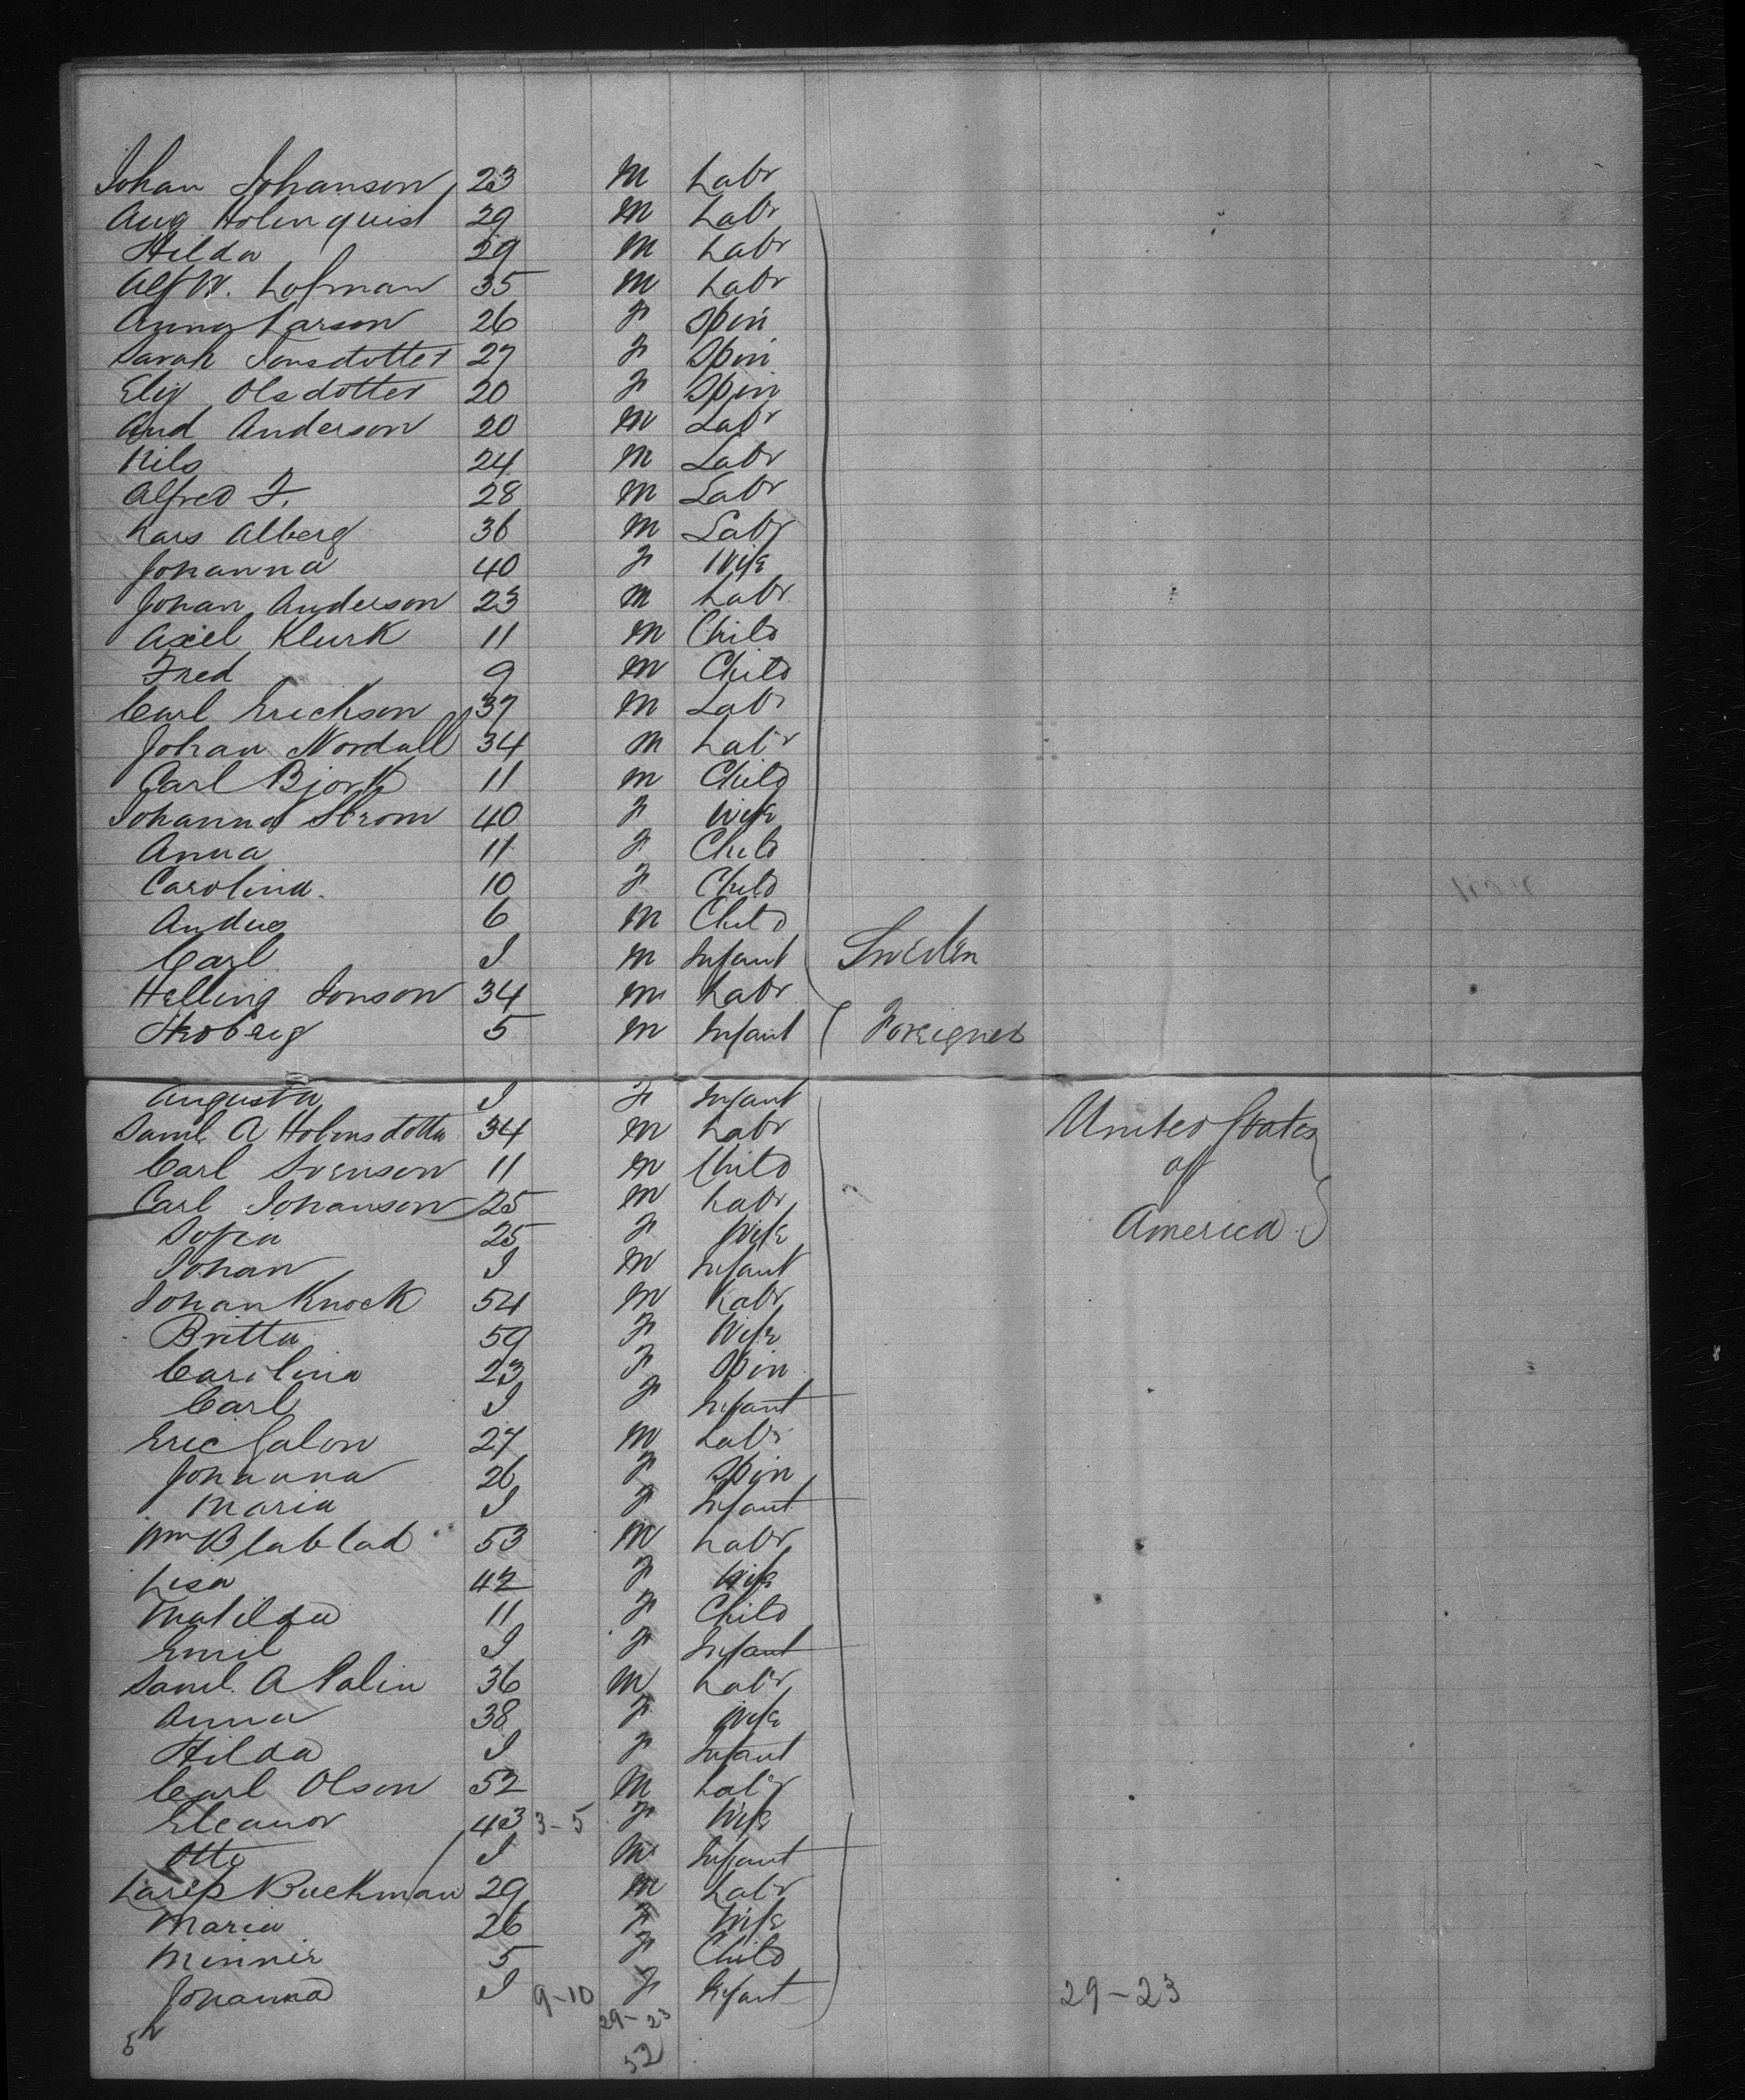 Johan Johanson 23 M Labr
Aug Holmquist 29 M Labr
Hilda 29 M Labr
Alf W. Lofman 35 M Labr
Anna Larson 26 F Spin
Sarah Jonsdotter 27 F Spin
Eliz Olsdotter 20 F Spin
And Anderson 20 M Labr
Nils 24 M Labr
Alfred F. 28 M Labr
Lars Alberg 36 M Labr
Johanna 40 F Wife
Johan Anderson 23 M Labr
Axel Klurk 11 M Child
Fred 9 M Child
Carl Erickson 37 M Labr
Johan Nordall 34 M Labr
Carl Bjork 11 M Child
Johanna Strom 40 F Wife
Anna 11 F Child
Carolina. 10 F Child
Andres 6 M Child
Carl I M Infant Sweden
Helling Jonson 34 M Labr
5 M Infant Foreigner
Augusta I F Infant
Saml A Holmsdotter 34 M Labr United States
Carl Svenson 11 M Child of
Carl Johanson 25 M Labr
Sofia 25 F Wife America
Johan I M Infant
Johan Knock 54 M Labr
Britta 59 F Wife
Carolina 23 F Spin
Carl I F Infant
Eric Galon 27 M Labr
Johanna 26 F Spin
Maria I F Infant
Wm Blablad 53 M Labr
Lisa 42 F Wife
Matilda 11 F Child
Emil I F Infant
Saml. A Palin 36 M Labr
Anna 38 F Wife
Hilda I F Infant
Carl Olson 52 M Labr
Eleanor 43 3-5 F Wife
Otto I M Infant
Lars P Buckman 29 M Labr
Maria 26 F Wife
Minnie 5 F Child
Johanna I 9-10 F Infant 29-23
29-23
52